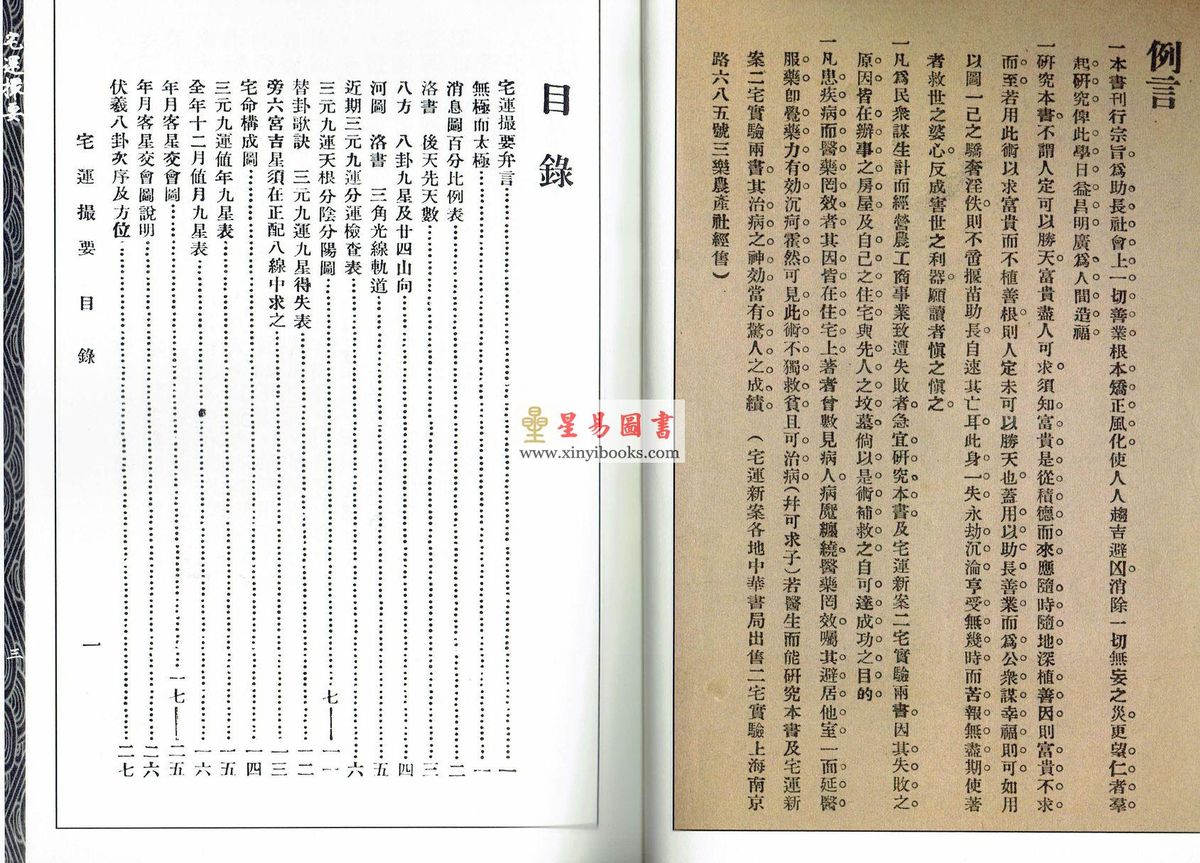 例言
一本書刊行宗旨爲助長社會上一切善業根本矯正風化使人人趨吉避凶消除一切無妄之災更望仁者羣
起硏究俾此學日益昌明廣爲人間造福
一硏究本書不謂人定可以勝天富貴盡人可求須知富貴是從積德而來應隨時隨地深植善因則富貴不求
而至若用此術以求富貴而不植善根則人定未可以勝天也蓋用以助長善業而爲公衆謀幸福則可如用
以圖一己之驕奢淫佚則不啻揠苗助長自速其亡耳此身一失永劫沉淪享受無幾時而苦報無盡期使著
者救世之婆心反成害世之利器願讀者愼之愼之
一凡爲民衆謀生計而經營農工商事業致遭失敗者急宜硏究本書及宅運新案二宅實驗兩書因其失敗之
原因皆在辦事之房屋及自己之住宅與先人之坟墓倘以是術補救之自可達成功之目的
一凡患疾病而醫藥罔效者其因皆在住宅上著者曾數見病人病魔纏繞醫藥罔效囑其避居他室一面延醫
服藥卽覺藥力有効沉疴霍然可見此術不獨救貧且可治病(幷可求子)若醫生而能硏究本書及宅運新
案二宅實驗兩書其治病之神効當有驚人之成績 (宅運新案各地中華書局出售二宅實驗上海南京
路六八五號三樂農產社經售)
目錄
宅運撮要弁言……一
無極而太極……一
消息圖百分比例表……二
洛書 後天先天數……三
八方 八卦九星及廿四山向……四
河圖 洛書 三角光線軌道……五
近期三元九運分運檢查表……六
三元九運天根分陰分陽圖……七——一一
替卦歌訣 三元九運九星得失表……一二
旁六宮吉星須在正配八線中求之……一三
宅命構成圖……一四
三元九運値年九星表……一五
全年十二月値月九星表……一六
年月客星交會圖……一七——二五
年月客星交會圖說明……二六
伏羲八卦次序及方位……二七
宅運撮要 目錄
一
宅運撮要
三
星易圖書
www.xinyibooks.com